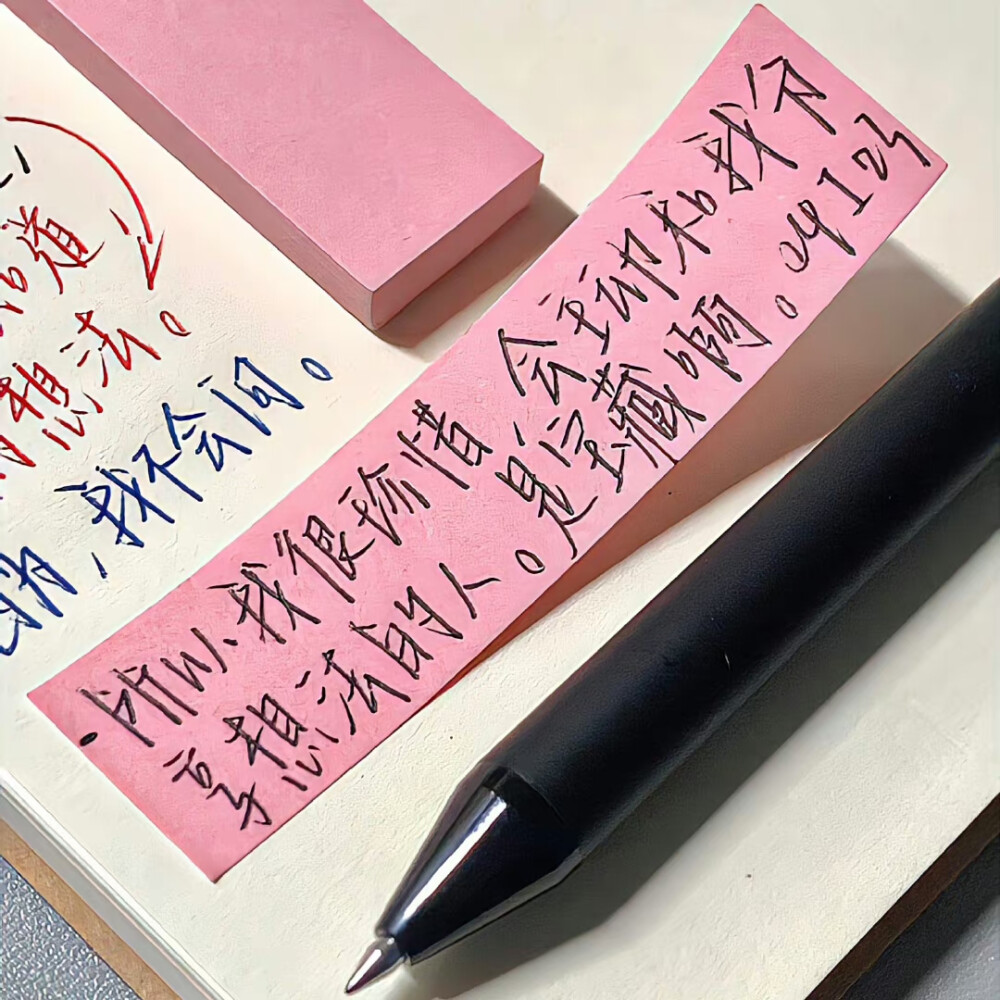 道
想法。
，我不会问。
·所以我很珍惜 会主动和我分
享想法的人。是宝藏啊。04I23